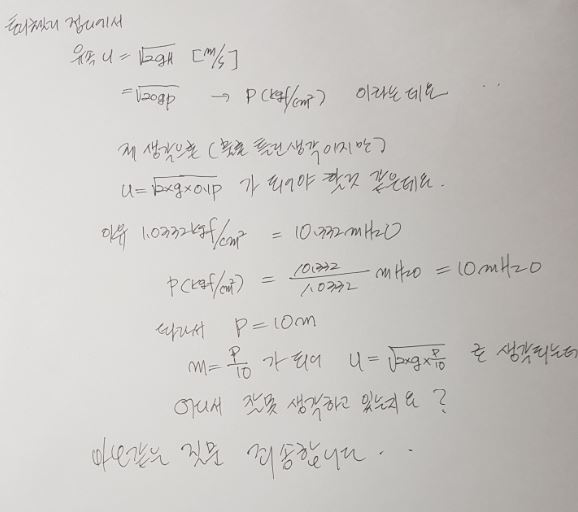 토리첼리 정리에서
유속 u = √2gH [m/s]
= √20gp → P(kgf/cm²) 이라는데요 ..
제 생각으로 (물론 틀린생각이지만)
u = √2×g×0.1p 가 되어야 할것 같은데요.
이유 1.0332kgf/cm² = 10.332mH2O
P(kgf/cm²) = 10.332/1.0332 mH2O = 10mH2O
따라서 P = 10m
m = P/10 가 되어 u = √2×g×P/10 로 생각되는데
어디서 잘못 생각하고 있는지요?
바보같은 질문 죄송합니다 . .